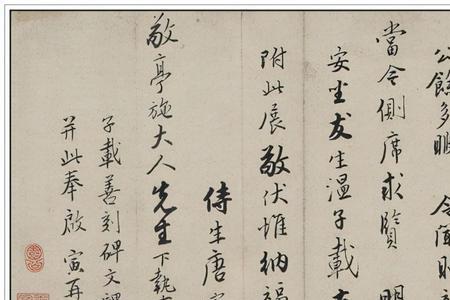 公餘多暇
當今側席求賢 明
安生友生溫子載
附此展敬伏惟納福
侍生唐
敬亭施大人先生下執
子載善刻碑文
并此奉啟 寅再